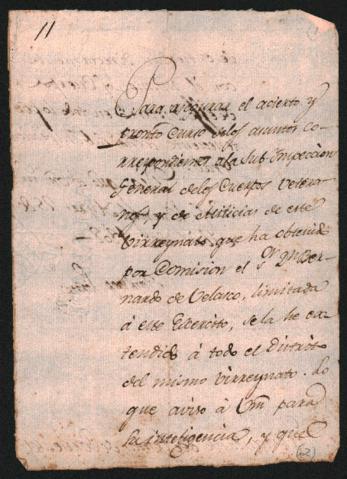 11
Para asegurar el acierto y
pronto curso de los asuntos co-
rrespondientes a la Sub-Inspeccion
General de los Cuerpos Vetera-
nos y de Milicias de este
Virreynato que ha obtenido
por Comision el Sr. Dn. Ber-
nardo de Velasco, limitada
à este Exercito, se la he ex-
tendido à todo el Distrito
del mismo Virreynato. Lo
que aviso à Vm para
su inteligencia, y que